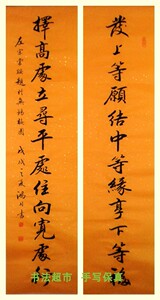 發上等願結中等緣享下等福
擇高處立尋平處住向寬處
左宗棠題於無錫梅園
戊戌
書法超市 手写保真